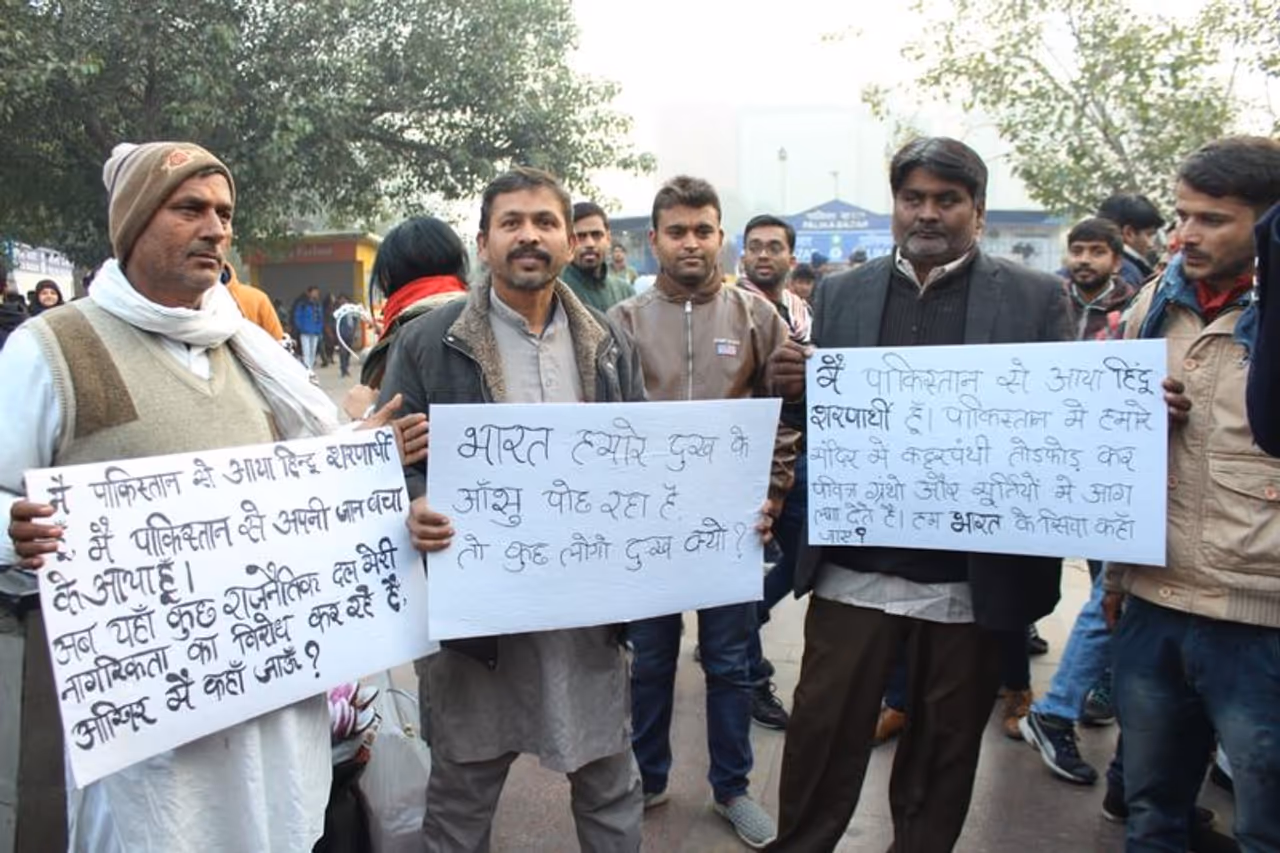 मैं पाकिस्तान से आया हिन्दू शरणार्थी
हूँ, मैं पाकिस्तान से अपनी जान बचा
के आया हूँ।
अब यहाँ कुछ राजनैतिक दल मेरी
नागरिकता का विरोध कर रहे है,
आखिर मैं कहाँ जाऊँ?
भारत हमारे दुख के
आँसु पोछ रहा है
तो कुछ लोगो दुःख क्यो?
मैं पाकिस्तान से आया हिंदू
शरणार्थी हूँ। पाकिस्तान मे हमारे
मंदिर मे कट्टरपंथी तोडफोड़ कर
पवित्र ग्रंथो और मूर्तियों मे आग
लगा देते है। हम भारत के सिवा कहाँ
जाए?
पालिका बाज़ार
PALIKA BAZAR